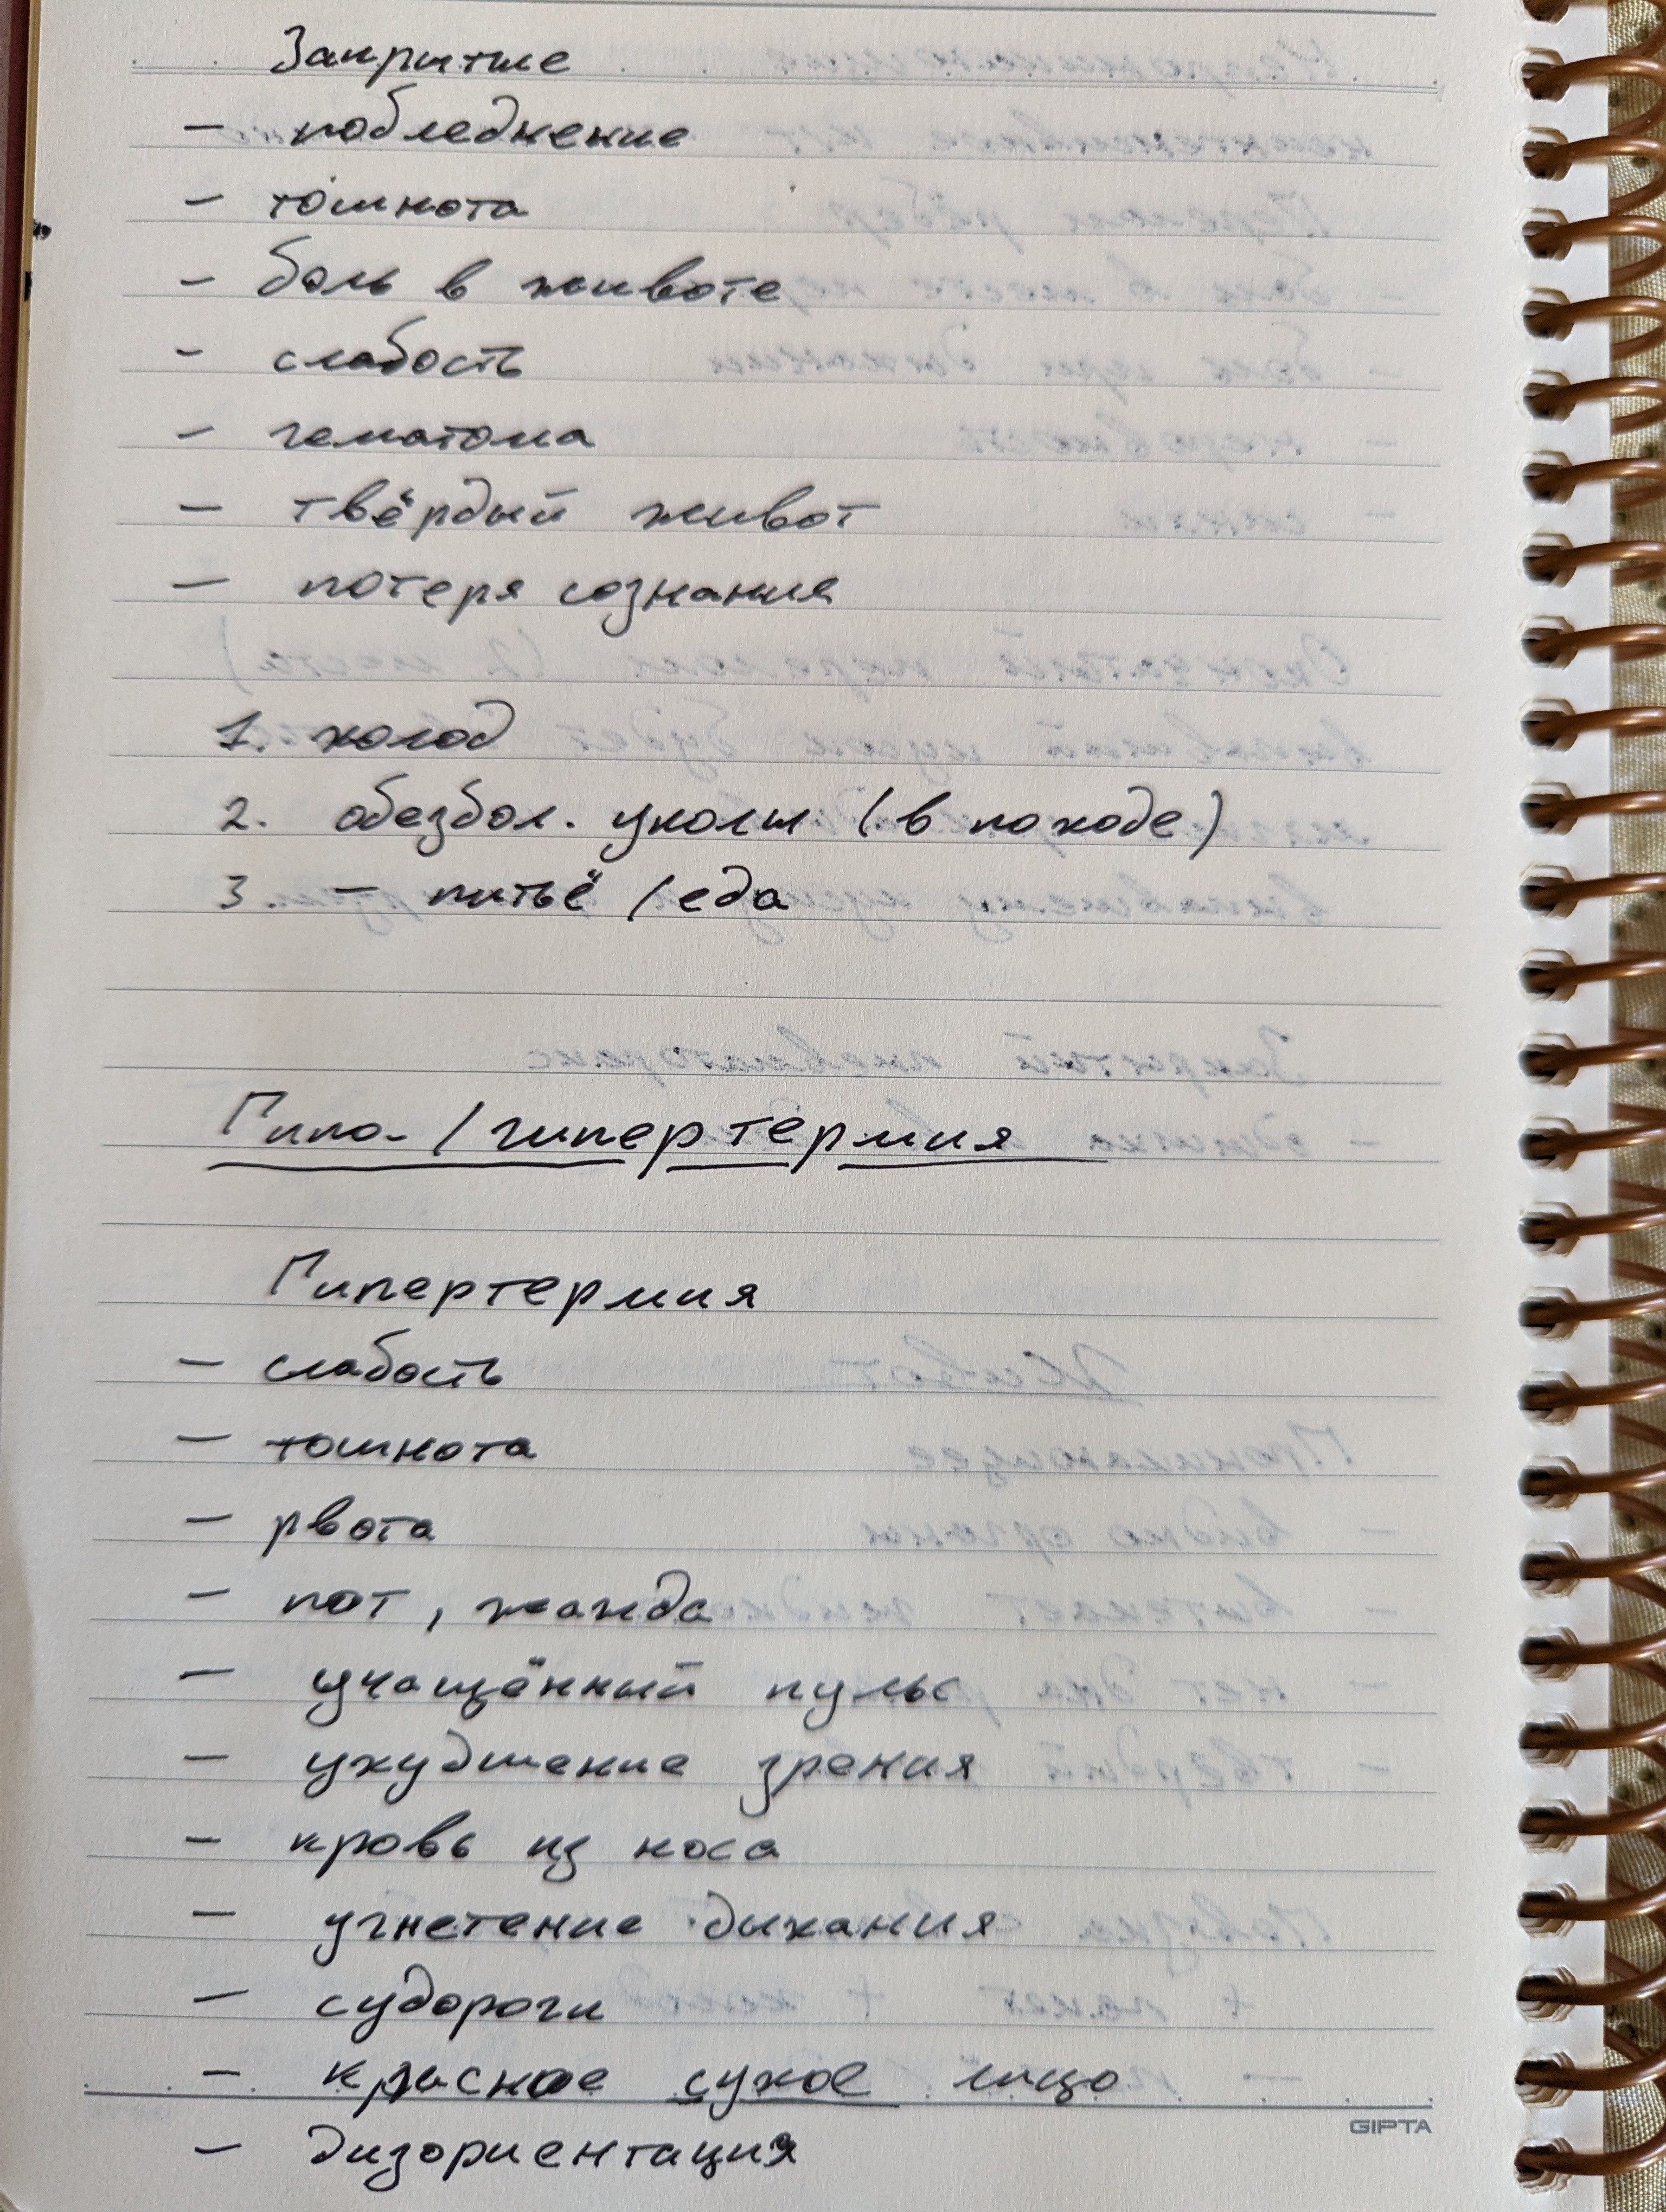 Закрытые
- побледнение
- тошнота
- боль в животе
- слабость
- гематома
- твёрдый живот
- потеря сознания
1. холод
2. обезбол. уколы (в походе)
3. - питьё / еда
Гипо- / гипертермия
Гипертермия
- слабость
- тошнота
- рвота
- пот, жажда
- учащённый пульс
- ухудшение зрения
- кровь из носа
- угнетение дыхания
- судороги
- красное сухое лицо
GIPTA
- дизориентация